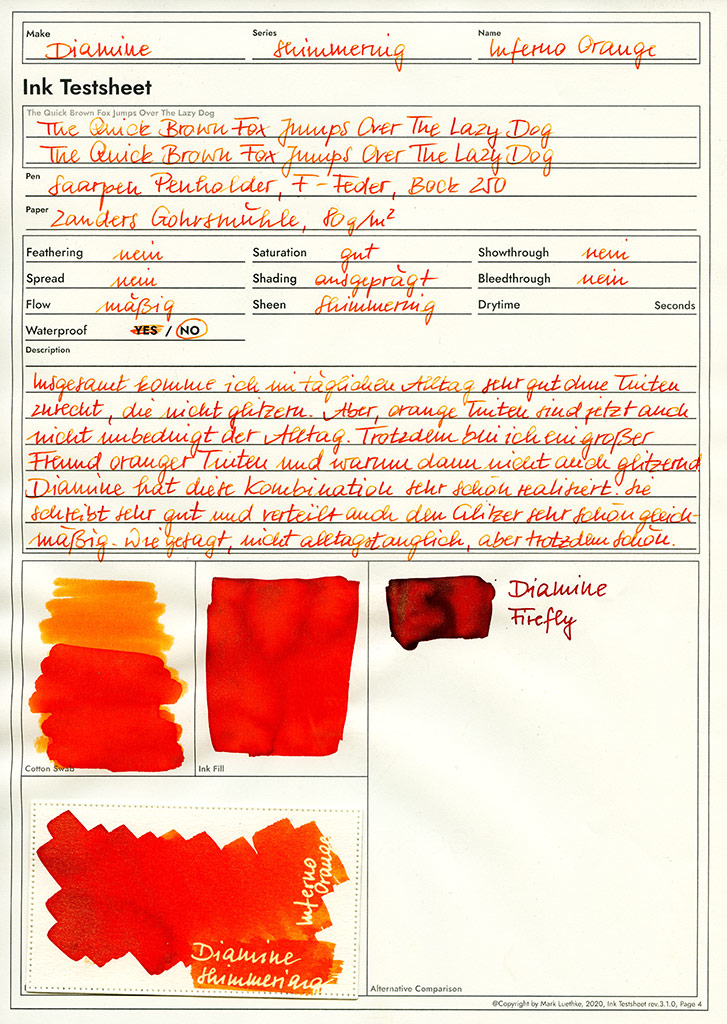 Make Diamine Series Shimmering Name Inferno Orange
Ink Testsheet
The Quick Brown Fox Jumps Over The Lazy Dog
The Quick Brown Fox Jumps Over The Lazy Dog
The Quick Brown Fox Jumps Over The Lazy Dog
Pen Saarpen Penholder, F-Feder, Bock 250
Paper Zanders Gohrsmühle, 80g/m²
Feathering nein Saturation gut Showthrough nein
Spread nein Shading ausgeprägt Bleedthrough nein
Flow mäßig Sheen shimmernig Drytime Seconds
Waterproof YES / NO
Description
Insgesamt komme ich im täglichen Alltag sehr gut ohne Tinten
zurecht, die nicht glitzern. Aber, orange Tinten sind jetzt auch
nicht unbedingt der Alltag. Trotzdem bin ich ein großer
Freund oranger Tinten und warum dann nicht auch glitzernd
Diamine hat diese Kombination sehr schön realisiert. Sie
schreibt sehr gut und verteilt auch den Glitzer sehr schön gleich-
mäßig. Wie gesagt, nicht alltagstauglich, aber trotzdem schön.
Diamine
Firefly
Cotton Swab Ink Fill
Inferno
Orange
Diamine
Shimmering
Alternative Comparison
@Copyright by Mark Luethke, 2020, Ink Testsheet rev.3.1.0, Page 4